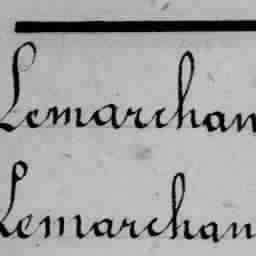 Lemarchan
Lemarchan